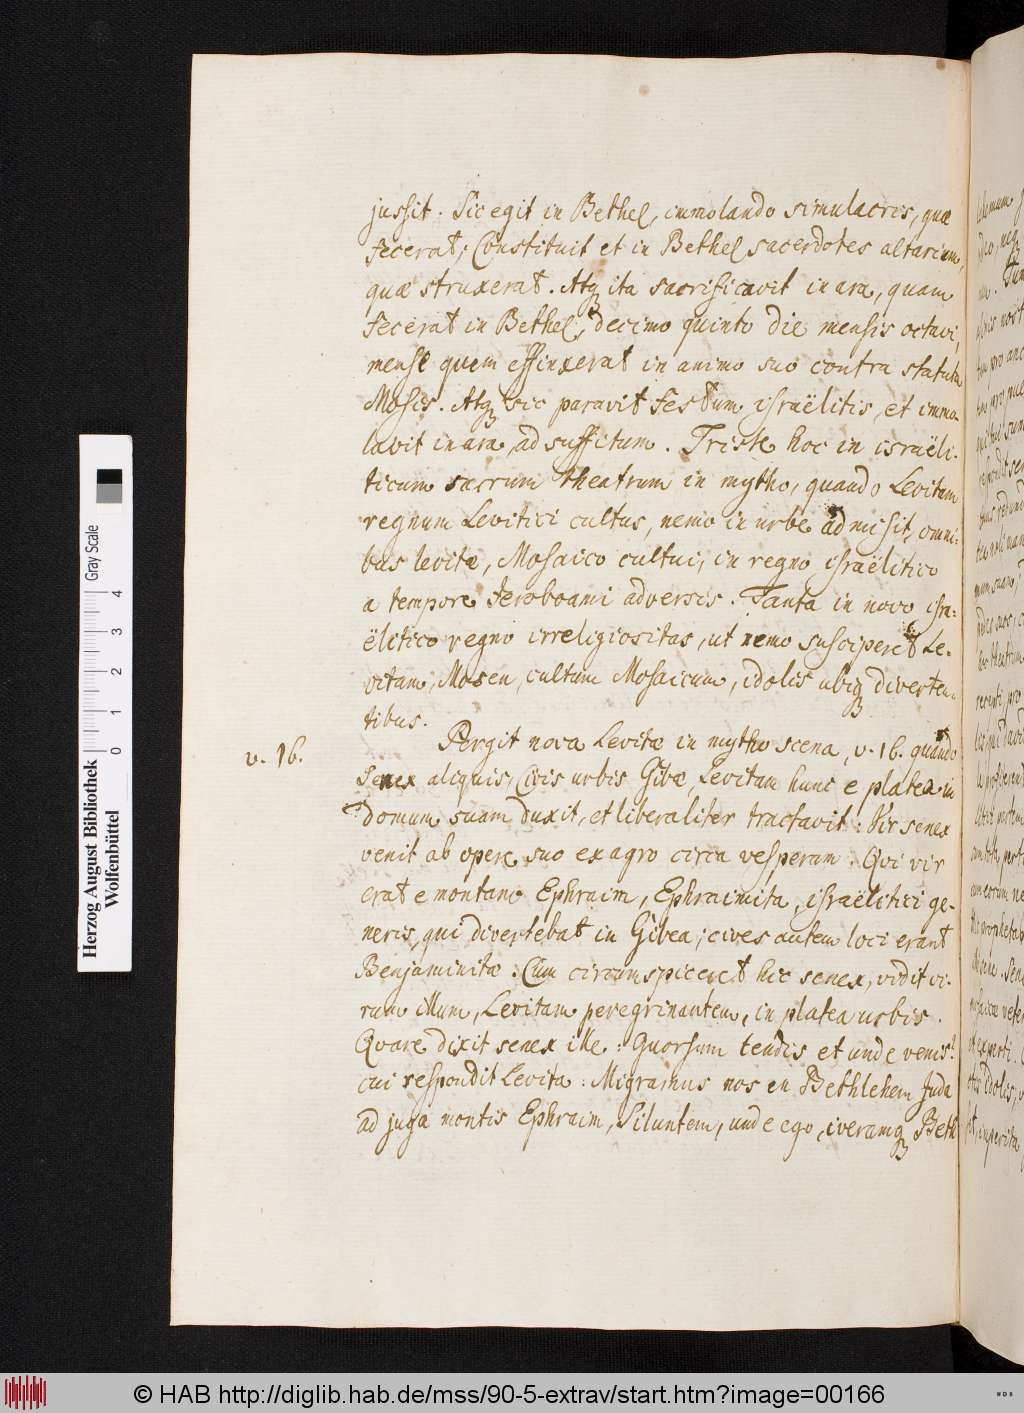 jussit. Sic egit in Bethel, immolando simulacris, quæ
fecerat; Constituit et in Bethel sacerdotes altarium,
quæ struxerat. Atq ita sacrificavit in ara, quam
fecerat in Bethel, decimo quinto die mensis octavi,
mense quem effinxerat in animo suo contra statuta
Mosis. Atq sic paravit festum israëlitis et immo-
lavit in ara ad suffitum. Triste hoc in israëli-
ticum sacrum theatrum in mytho, quando Levitam
regnum Levitici cultus, nemo in urbe admisit, omni-
bus levitæ, Mosaico cultui, in regno israëlitico
a tempore Jeroboami adversis. Tanta in novo isra-
ëlitico regno irreligiositas, ut nemo susciperet Le-
vitam, Mosen, cultum Mosaicum, idolis ubiq diverten-
tibus.
v. 16.
Pergit nova Levitæ in mytho scena, v. 16. quando
Senex aliquis, Civis urbis Gibæ, Levitam hunc e platea in
domum suam duxit, et liberaliter tractavit: Vir senex
venit ab opere suo ex agro circa vesperam. Qvi vir
erat e montano Ephraim, Ephraimita, israëlitici ge-
neris, qui divertebat in Gibea; cives autem loci erant
Benjaminitæ. Cum circumspiceret hic senex, vidit vi-
rum illum, Levitam peregrinantem, in platea urbis.
Qvare dixit senex ille: Quorsum tendis et unde venis?
cui respondit Levita: Migramus nos en Bethlehem Juda
ad juga montis Ephraim, Siluntem, unde ego, iveramq Beth
Herzog August Bibliothek
Wolfenbüttel
0 1 2 3 4
Gray Scale
© HAB http://diglib.hab.de/mss/90-5-extrav/start.htm?image=00166